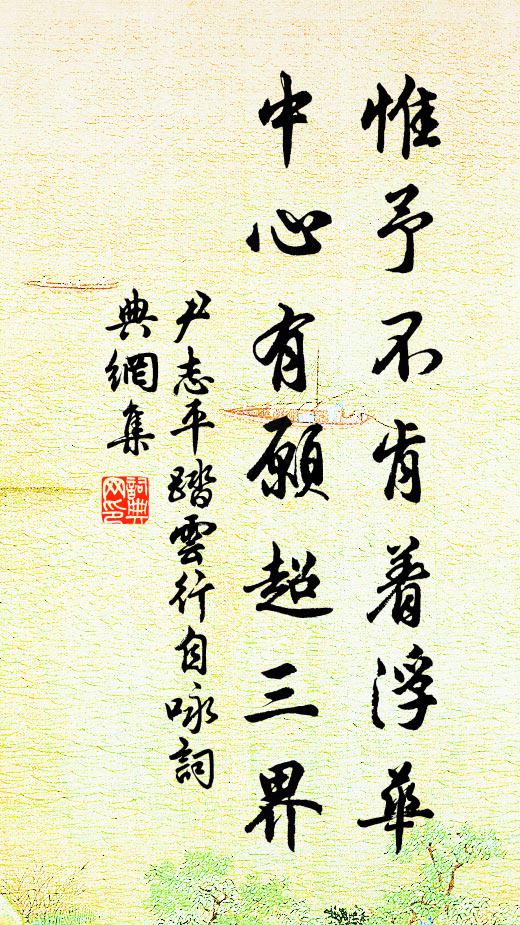 惟予不肯着浮華
中心有願超三界
尹志平踏雲行自咏詞
典網集
詞典网印